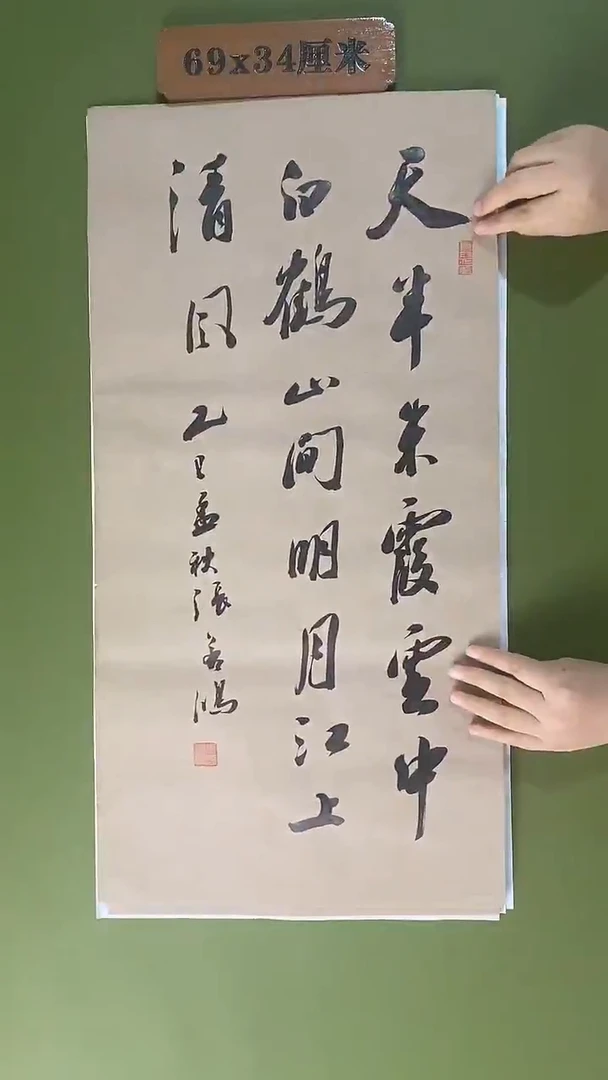 69x34厘米
天半朱霞雲中
白鶴山間明月江上
清风乙巳孟秋張若鴻